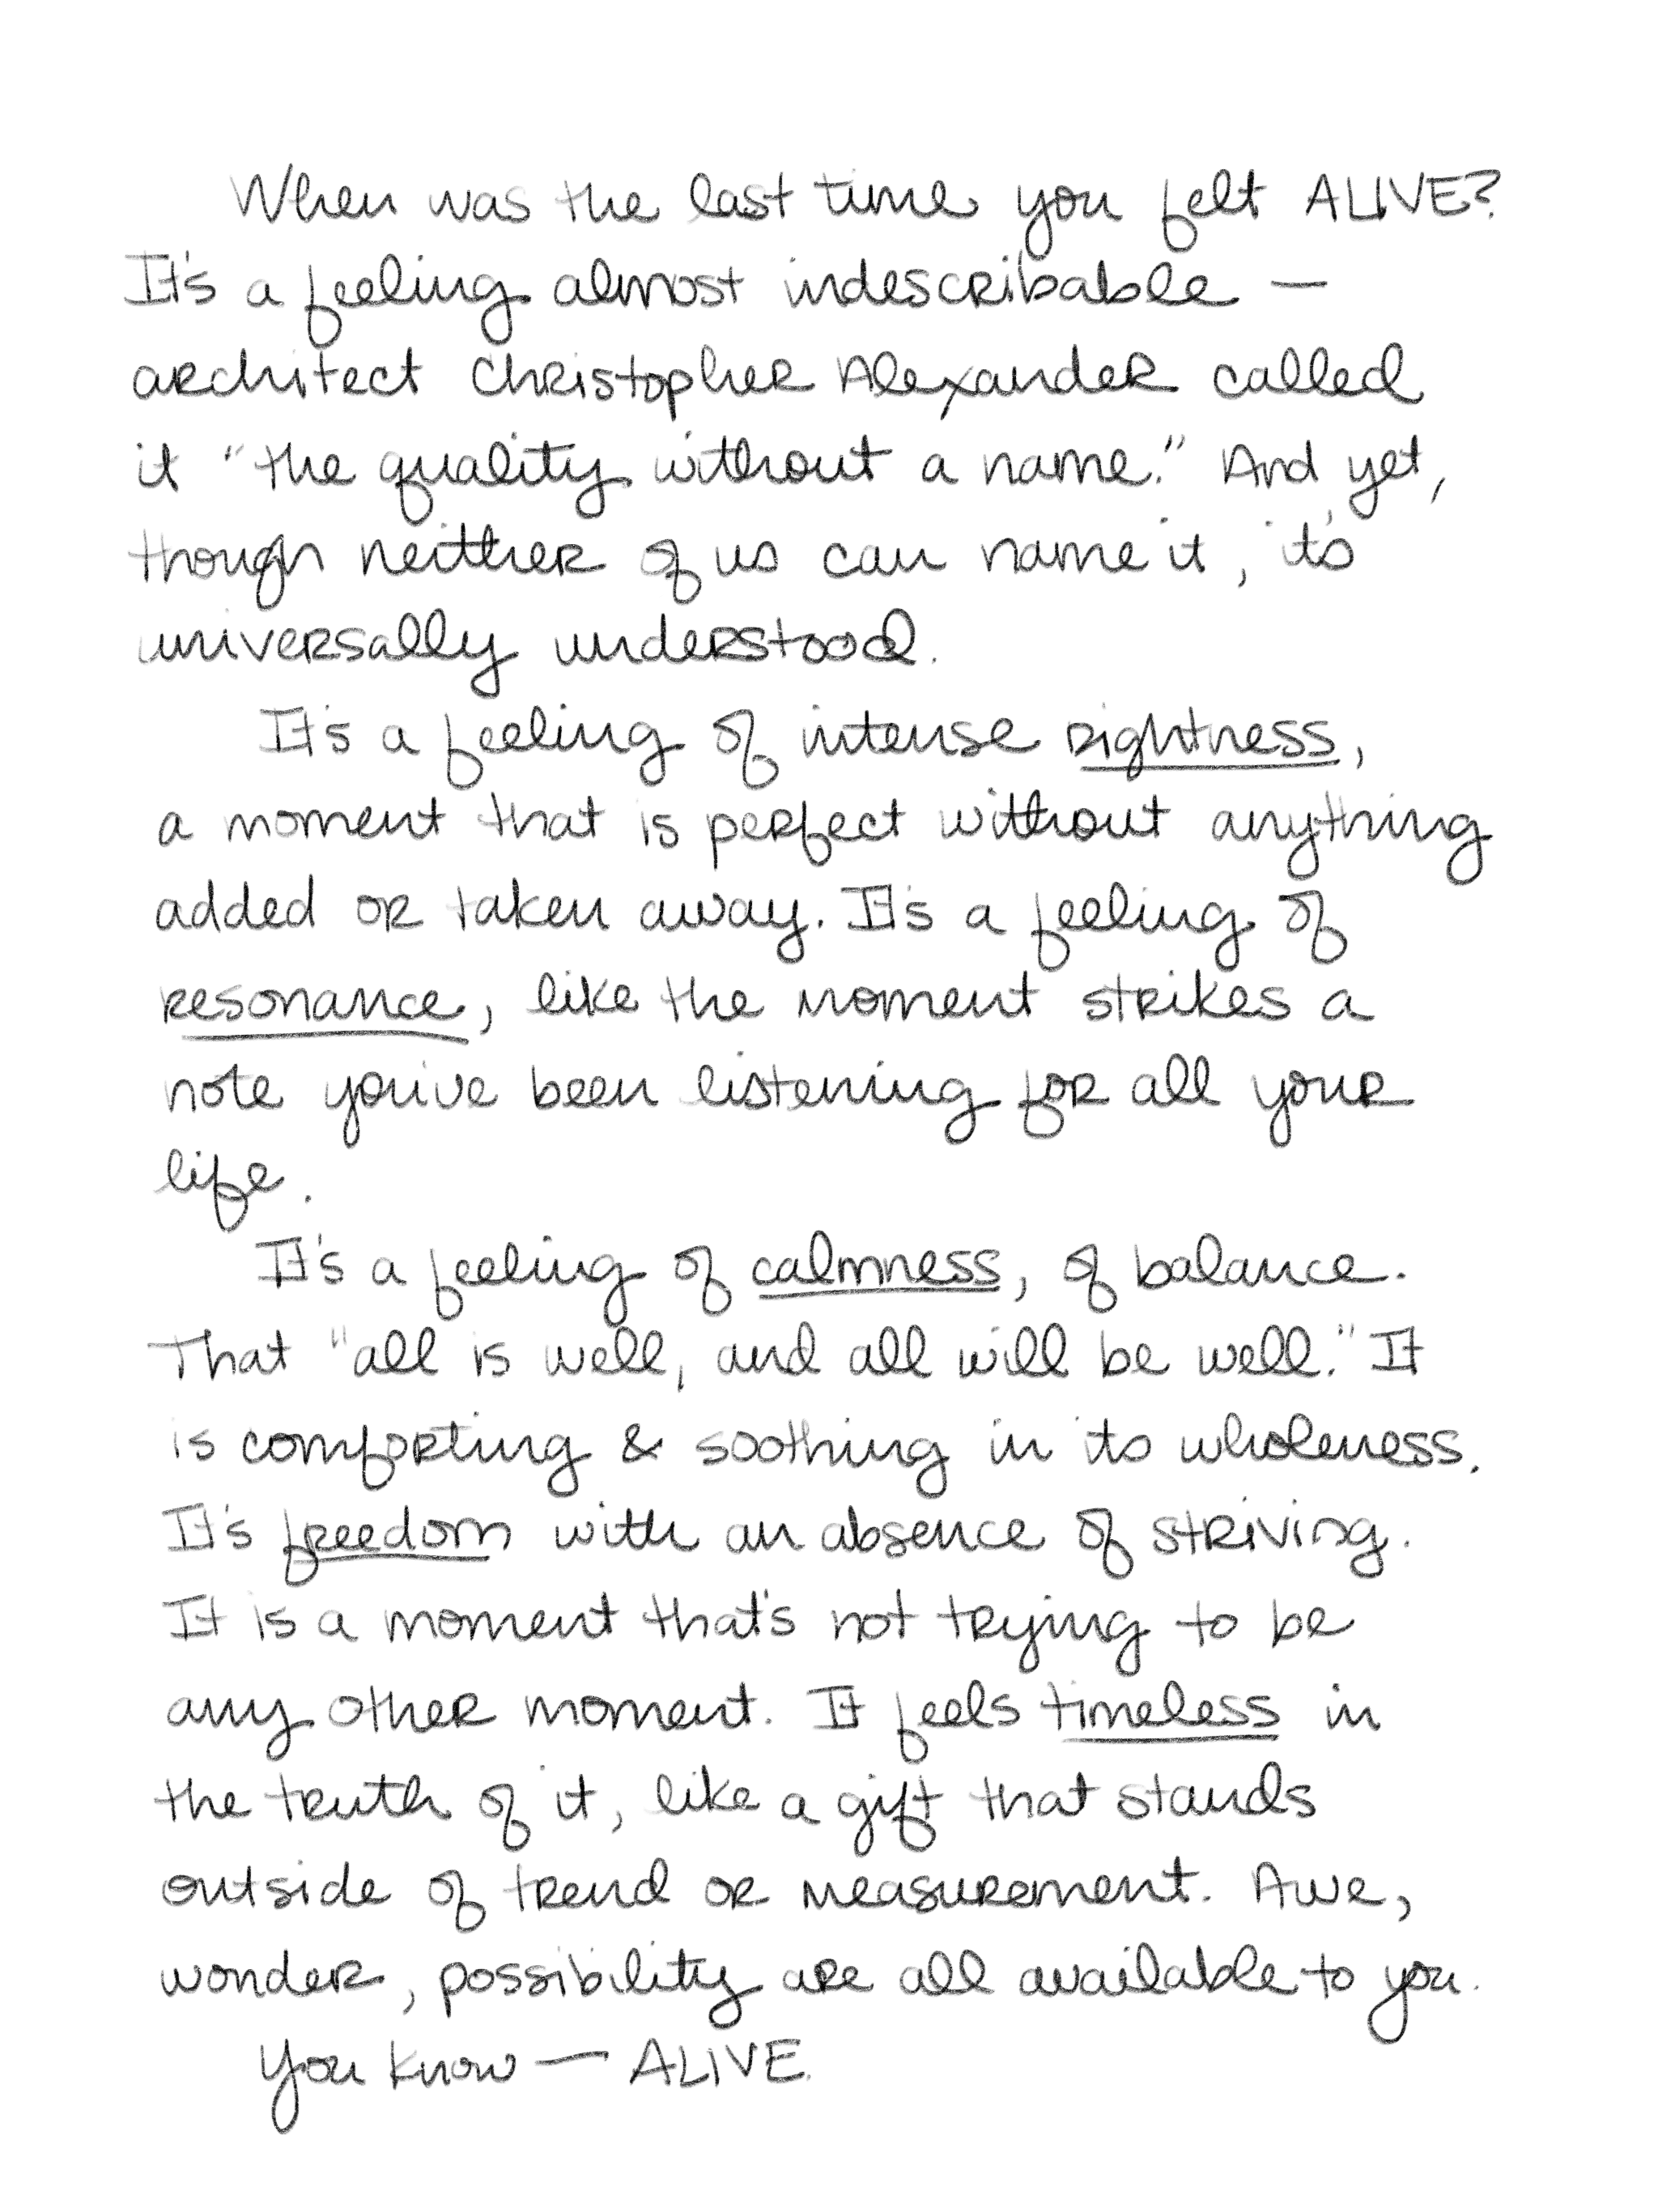 When was the last time you felt ALIVE?
It's a feeling almost indescribable —
architect Christopher Alexander called
it "the quality without a name." And yet,
though neither of us can name it, it's
universally understood.
It's a feeling of intense rightness,
a moment that is perfect without anything
added or taken away. It's a feeling of
resonance, like the moment strikes a
note you've been listening for all your
life.
It's a feeling of calmness, of balance.
That "all is well, and all will be well." It
is comforting & soothing in its wholeness.
It's freedom with an absence of striving.
It is a moment that's not trying to be
any other moment. It feels timeless in
the truth of it, like a gift that stands
outside of trend or measurement. Awe,
wonder, possibility are all available to you.
You know — ALIVE.